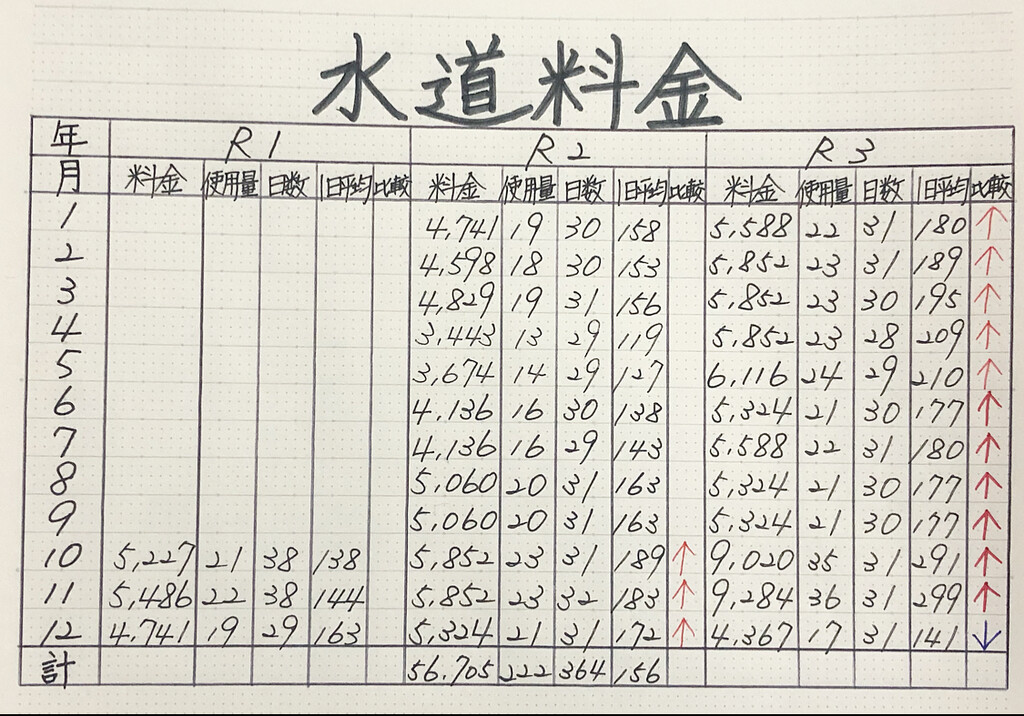 水道料金
年 R1 R2 R3
月 料金 使用量 日数 1日平均 比較 料金 使用量 日数 1日平均 比較 料金 使用量 日数 1日平均 比較
1 4,741 19 30 158 5,588 22 31 180 ↑
2 4,598 18 30 153 5,852 23 31 189 ↑
3 4,829 19 31 156 5,852 23 30 195 ↑
4 3,443 13 29 119 5,852 23 28 209 ↑
5 3,674 14 29 127 6,116 24 29 210 ↑
6 4,136 16 30 138 5,324 21 30 177 ↑
7 4,136 16 29 143 5,588 22 31 180 ↑
8 5,060 20 31 163 5,324 21 30 177 ↑
9 5,060 20 31 163 5,324 21 30 177 ↑
10 5,227 21 38 138 5,852 23 31 189 ↑ 9,020 35 31 291 ↑
11 5,486 22 38 144 5,852 23 32 183 ↑ 9,284 36 31 299 ↑
12 4,741 19 29 163 5,324 21 31 172 ↑ 4,367 17 31 141 ↓
計 56,705 222 364 156